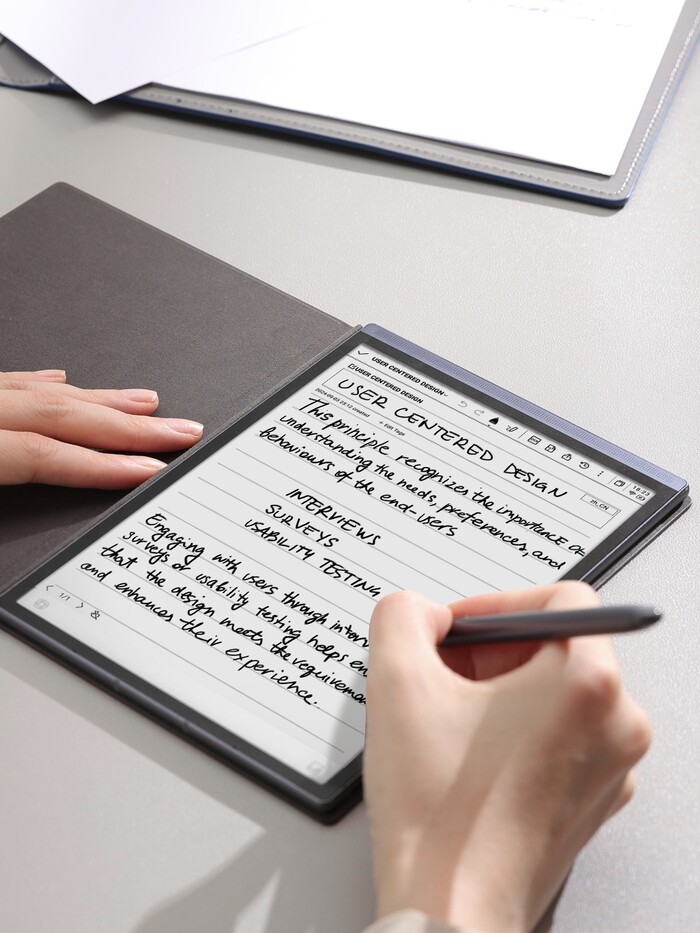 USER CENTERED DESIGN
18:23
USER CENTERED DESIGN
USER CENTERED DESIGN
created + Edit Tags
zh_CN
This principle recognizes the importance
understanding the needs, preferences, and
behaviours of the end-users
INTERVIEWS
SURVEYS
USABILITY TESTING
Engaging with users through
surveys or usability testing helps
that the design meets the
and enhances their experience.
1/1